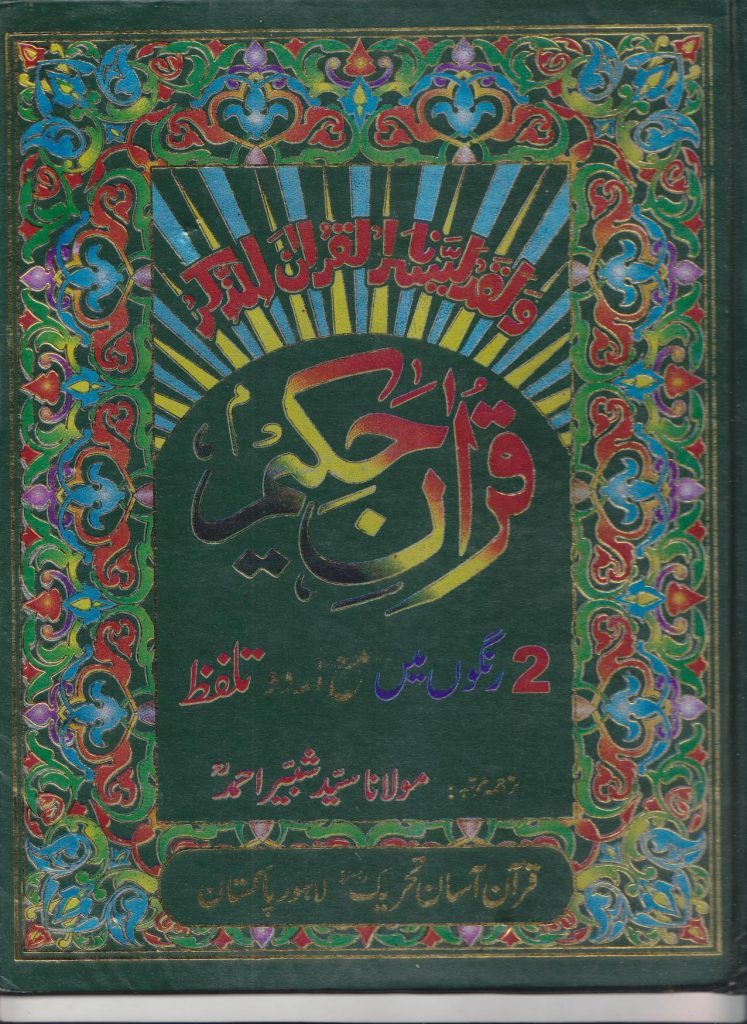 وَلَقَدْ يَسَّرْنَا الْقُرْاٰنَ لِلذِّكْرِ
قُرْاٰنِ حَکِیْم
2 رنگوں میں مع اردو تلفظ
ترجمہ مرتبہ : مولانا سیّد شبّیر احمدؒ
قرآن آسان تحریک لاہور پاکستان